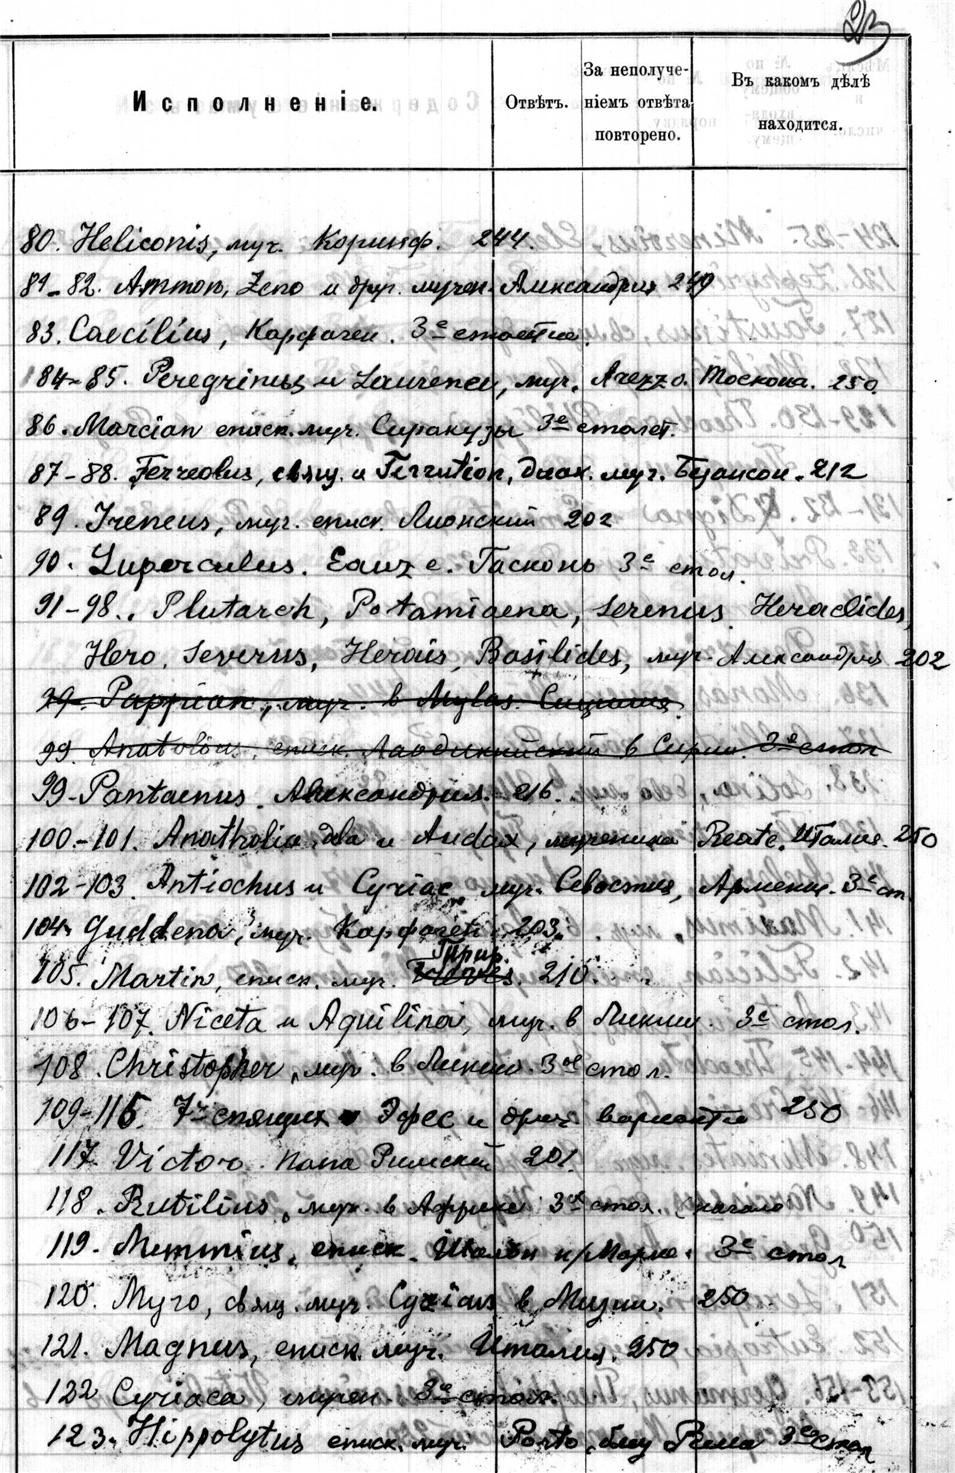 23
Исполненіе.
Отвѣтъ.
За неполуче-
ніемъ отвѣта
повторено.
Въ какомъ дѣлѣ
находится.
80. Heliconis, муч. Коринф. 244.
81-82. Ammon, Zeno и друг. мучен. Александрия 249
83. Caecilius, Карфаген. 3е столетие.
84-85. Peregrinus и Laurence, муч. Arezzo. Тоскана. 250.
86. Marcian еписк. муч. Сиракузы 3е столет.
87-88. Ferreolus, свящ. и Ferrution, диак. муч. Безансон. 212
89. Ireneus, муч. еписк. Лионский 202
90. Luperculus. Eauze. Гасконь 3е стол.
91-98. Plutarch, Potamiaena, Serenus Heraclides,
Hero, Severus, Herais, Basilides, муч. Александрия 202
99. Pappian, муч. в Mylas. Сицилия.
99. Anatolius, еписк. Лаодикийский в Сирии. 3е стол
99. Pantaenus. Александрия. 216.
100-101. Anatholia, два и Audax, мученика Reate, Италия. 250
102-103. Antiochus и Cyriac муч. Севастия, Армения. 3е ст.
104. Guddena, муч. Карфаген 203.
Трир.
105. Martin, еписк. муч. Treves. 210.
106-107. Niceta и Aquilina, муч. в Ликии. 3е стол.
108. Christopher, муч. в Ликии. 3ое стол.
109-116. 7 спящих Эфес и друг. варианты 250
117. Victor. Папа Римский 201.
118. Rutilius, муч. в Африке 3ое стол. начало
119. Memmius, еписк. Шалон н/Марне. 3е стол
120. Myro, свящ. муч. Cyzicus в Мизии. 250.
121. Magnus, еписк. муч. Италия. 250
122 Cyriaca, мучен. 3е стол.
123. Hippolytus еписк. муч. Porto, близ Рима 3ое стол